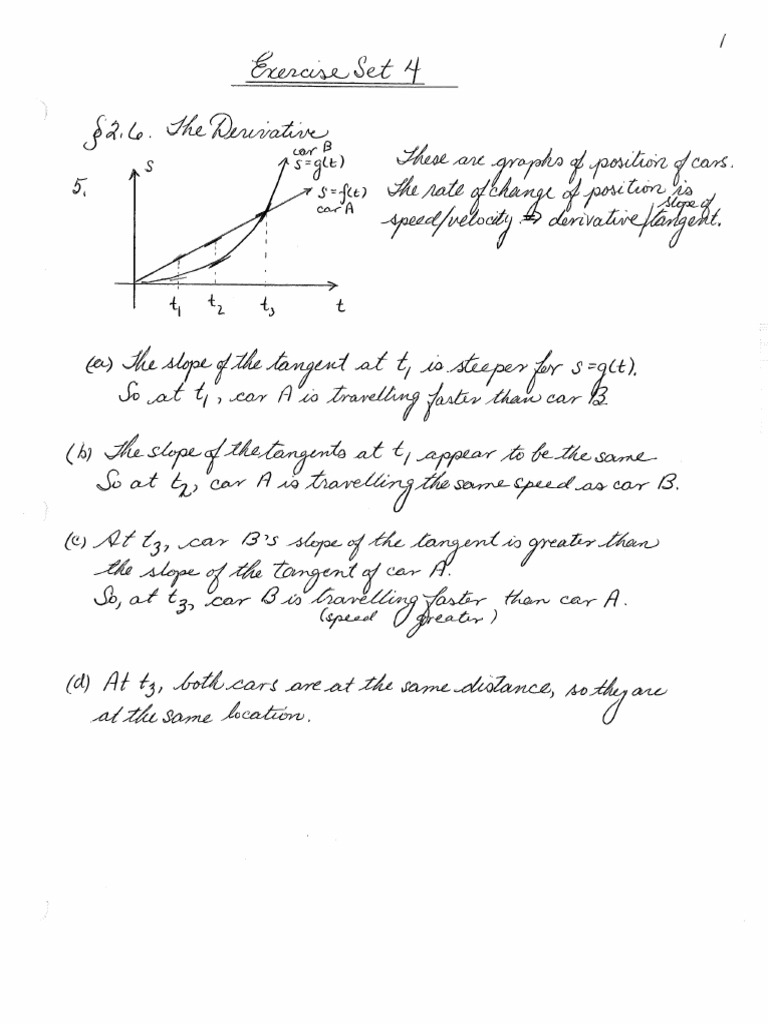 1
Exercise Set 4
§2.6. The Derivative
5.
s
car B
s=g(t)
s=f(t)
car A
t₁ t₂ t₃ t
These are graphs of position of cars.
The rate of change of position is
speed/velocity ⇒ derivative/slope of tangent.
(a) The slope of the tangent at t₁ is steeper for s=g(t).
So at t₁, car A is travelling faster than car B.
(b) The slope of the tangents at t₁ appear to be the same
So at t₂, car A is travelling the same speed as car B.
(c) At t₃, car B's slope of the tangent is greater than
the slope of the tangent of car A.
So, at t₃, car B is travelling faster than car A.
(speed greater)
(d) At t₃, both cars are at the same distance, so they are
at the same location.